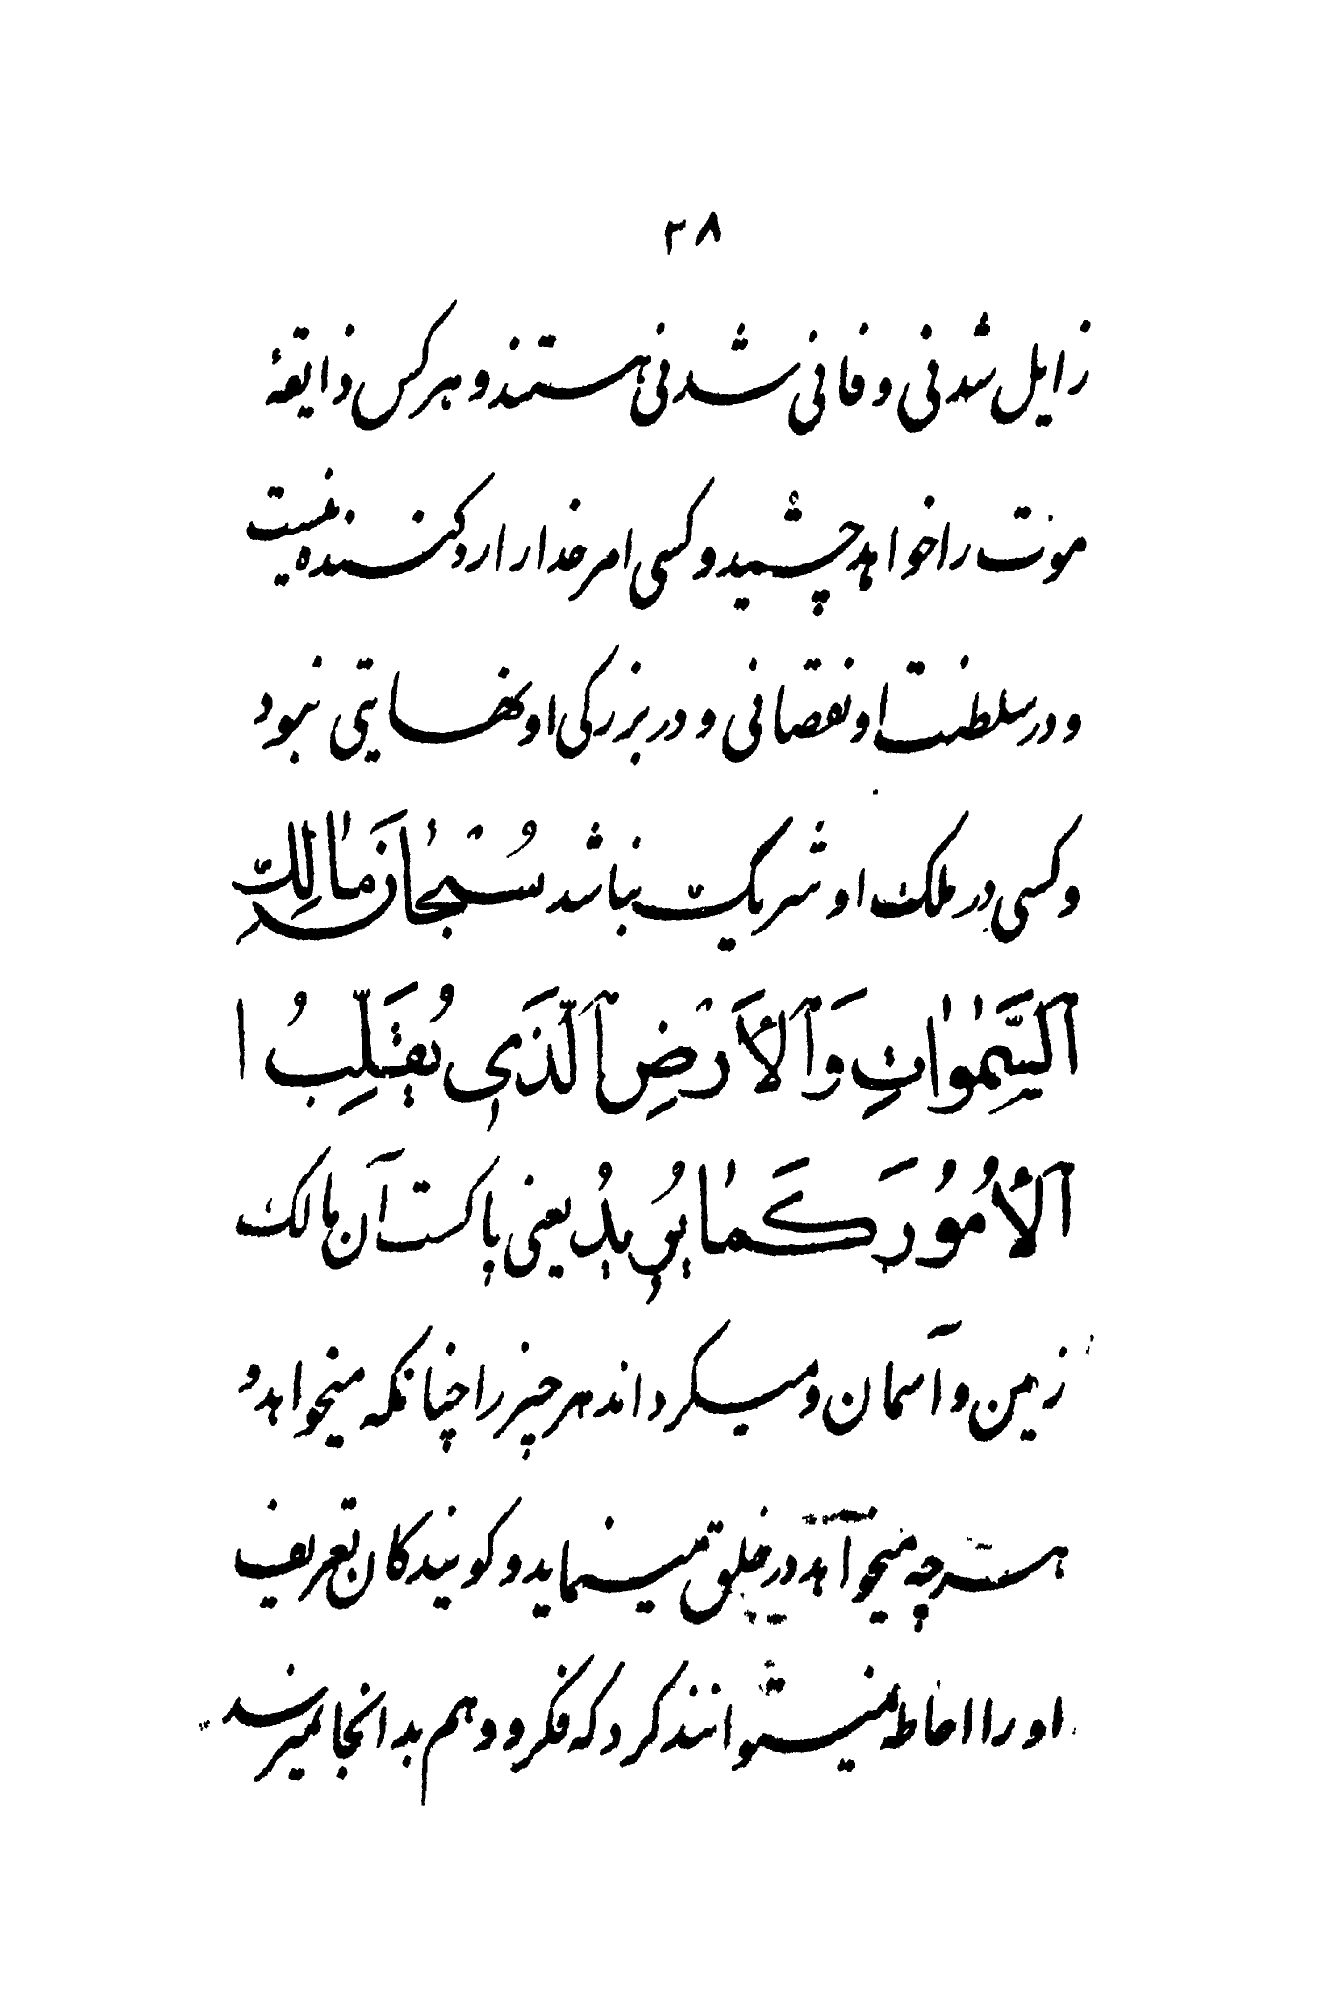 ۳۸
زایل شدنی و فانی شدنی هستند و هر کس ذایقهٔ
موت را خواهد چشید و کسی امر خدا را رد کننده نیست
و در سلطنت او نقصانی و در بزرکی او نهایتی نبود
و کسی در ملک او شریک نباشد سُبْحانَ مالِکِ
اَلسَّمٰواتِ وَ اَلْأَرْضِ اَلَّذی یُقَلِّبُ ا
اَلْأُمُورَ کَمٰا یُریدُ یعنی پاکست آن مالک
زمین و آسمان و میکرداند هر چیز را چنانکه میخواهد و
هر چه میخواهد در خلق مینماید و کویندکان تعریف
او را احاطه نمیتوانند کرد که فکر و وهم بدانجا نمیرسد